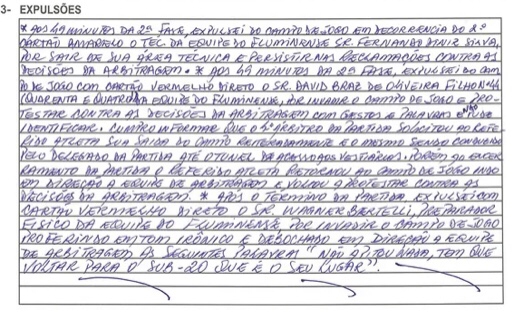 3- EXPULSÕES
* AOS 49 MINUTOS DA 2ª FASE, EXPULSEI DO CAMPO DE JOGO EM DECORRENCIA DO 2º
CARTÃO AMARELO O TEC. DA EQUIPE DO FLUMINENSE SR. FERNANDO DINIZ SILVA,
POR SAIR DE SUA ÁREA TÉCNICA E PERSISTIR NAS RECLAMAÇÕES CONTRA AS
DECISÕES DA ARBITRAGEM. * AOS 49 MINUTOS DA 2ª FASE, EXPULSEI DO CAM
PO DE JOGO COM CARTÃO VERMELHO DIRETO O SR. DAVID BRAZ DE OLIVEIRA FILHO Nº 44
(QUARENTA E QUATRO) DA EQUIPE DO FLUMINENSE, POR INVADIR O CAMPO DE JOGO E PRO-
TESTAR CONTRA AS DECISÕES DA ARBITRAGEM COM GESTOS E PALAVRAS NÃO PUDE
IDENTIFICAR. CUMPRO INFORMAR QUE O 4º ARBITRO DA PARTIDA SOLICITOU AO REFE-
RIDO ATLETA SUA SAIDA DO CAMPO REITERADAMENTE E O MESMO SENDO CONDUZIDO
PELO DELEGADO DA PARTIDA ATÉ O TUNEL DE ACESSO AOS VESTIARIOS. PORÉM AO ENCER-
RAMENTO DA PARTIDA O REFERIDO ATLETA RETORNOU AO CAMPO DE JOGO INDO
EM DIREÇÃO A EQUIPE DE ARBITRAGEM E VOLTOU A PROTESTAR CONTRA AS
DECISÕES DA ARBITRAGEM. * APÓS O TÉRMINO DA PARTIDA EXPULSEI COM
CARTÃO VERMELHO DIRETO O SR. WAGNER BERTELLI, PREPARADOR
FISICO DA EQUIPE DO FLUMINENSE POR INVADIR O CAMPO DE JOGO
PROFERINDO EM TOM IRÔNICO E DEBOCHADO EM DIREÇÃO A EQUIPE
DE ARBITRAGEM AS SEGUINTES PALAVRAS "NÃO APITOU NADA, TEM QUE
VOLTAR PARA O SUB-20 QUE É O SEU LUGAR".